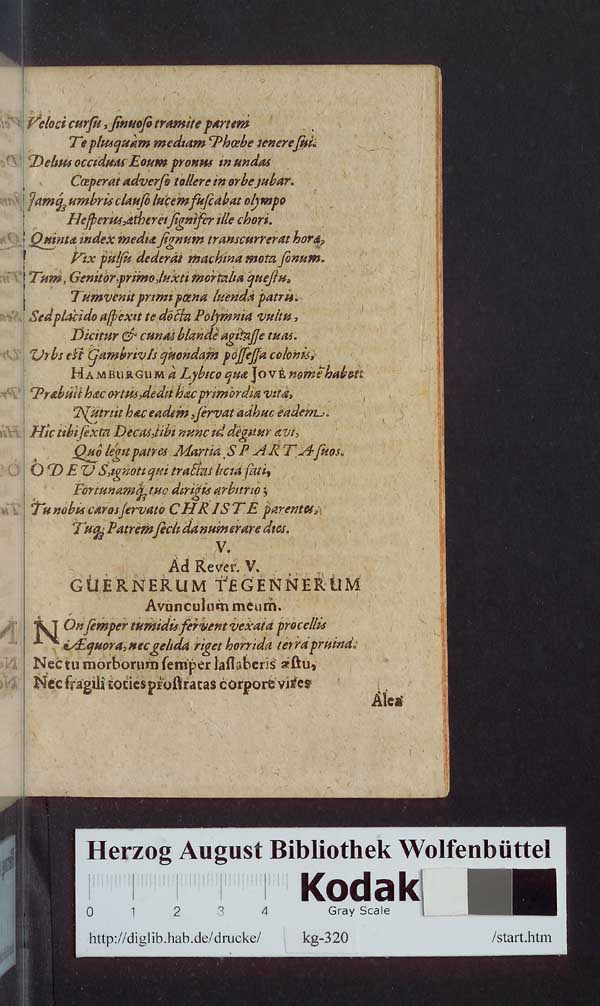 Veloci cursu, sinuoso tramite partem
Te plusquàm mediam Phœbe tenere sui.
Delius occiduas Eoum pronus in undas
Cœperat adverso tollere in orbe jubar.
Jamq́ꝫ umbris clauso lucem fuscabat olympo
Hesperius, ætherei signifer ille chori.
Quinta index mediæ signum transcurrerat horæ,
Vix pulsu dederat machina mota sonum.
Tum, Genitor, primo, luxti mortalia questu,
Tum venit primi pœna luenda patris.
Sed placido aspexit te docta Polymnia vultu,
Dicitur & cunas blandè agitasse tuas.
Urbs est Gambriviis quondam possessa colonis,
HAMBURGUM à Lybico quæ JOVE nomē habett
Præbuit hæc ortus, dedit hæc primordia vitæ,
Nutriit hæc eadem, servat adhuc eadem.
Hic tibi sexta Decas, tibi nunc id degitur ævi,
Quô legit patres Martia SPARTA suos.
O DEUS, ignoti qui tractas licia fati,
Fortunamq́ꝫ tuo dirigis arbitrio;
Tu nobis caros servato CHRISTE parentes,
Tuq́ꝫ Patrem secli da numerare dies.
V.
Ad Rever. V.
GUERNERUM TEGENNERUM
Avunculum meum.
NOn semper tumidis fervent vexata procellis
Æquora, nec gelida riget horrida terra pruina:
Nec tu morborum semper lassaberis æstu,
Nec fragili toties prostratas corpore vires
Alea
Herzog August Bibliothek Wolfenbüttel
0 1 2 3 4
Kodak
Gray Scale
http://diglib.hab.de/drucke/ kg-320 /start.htm